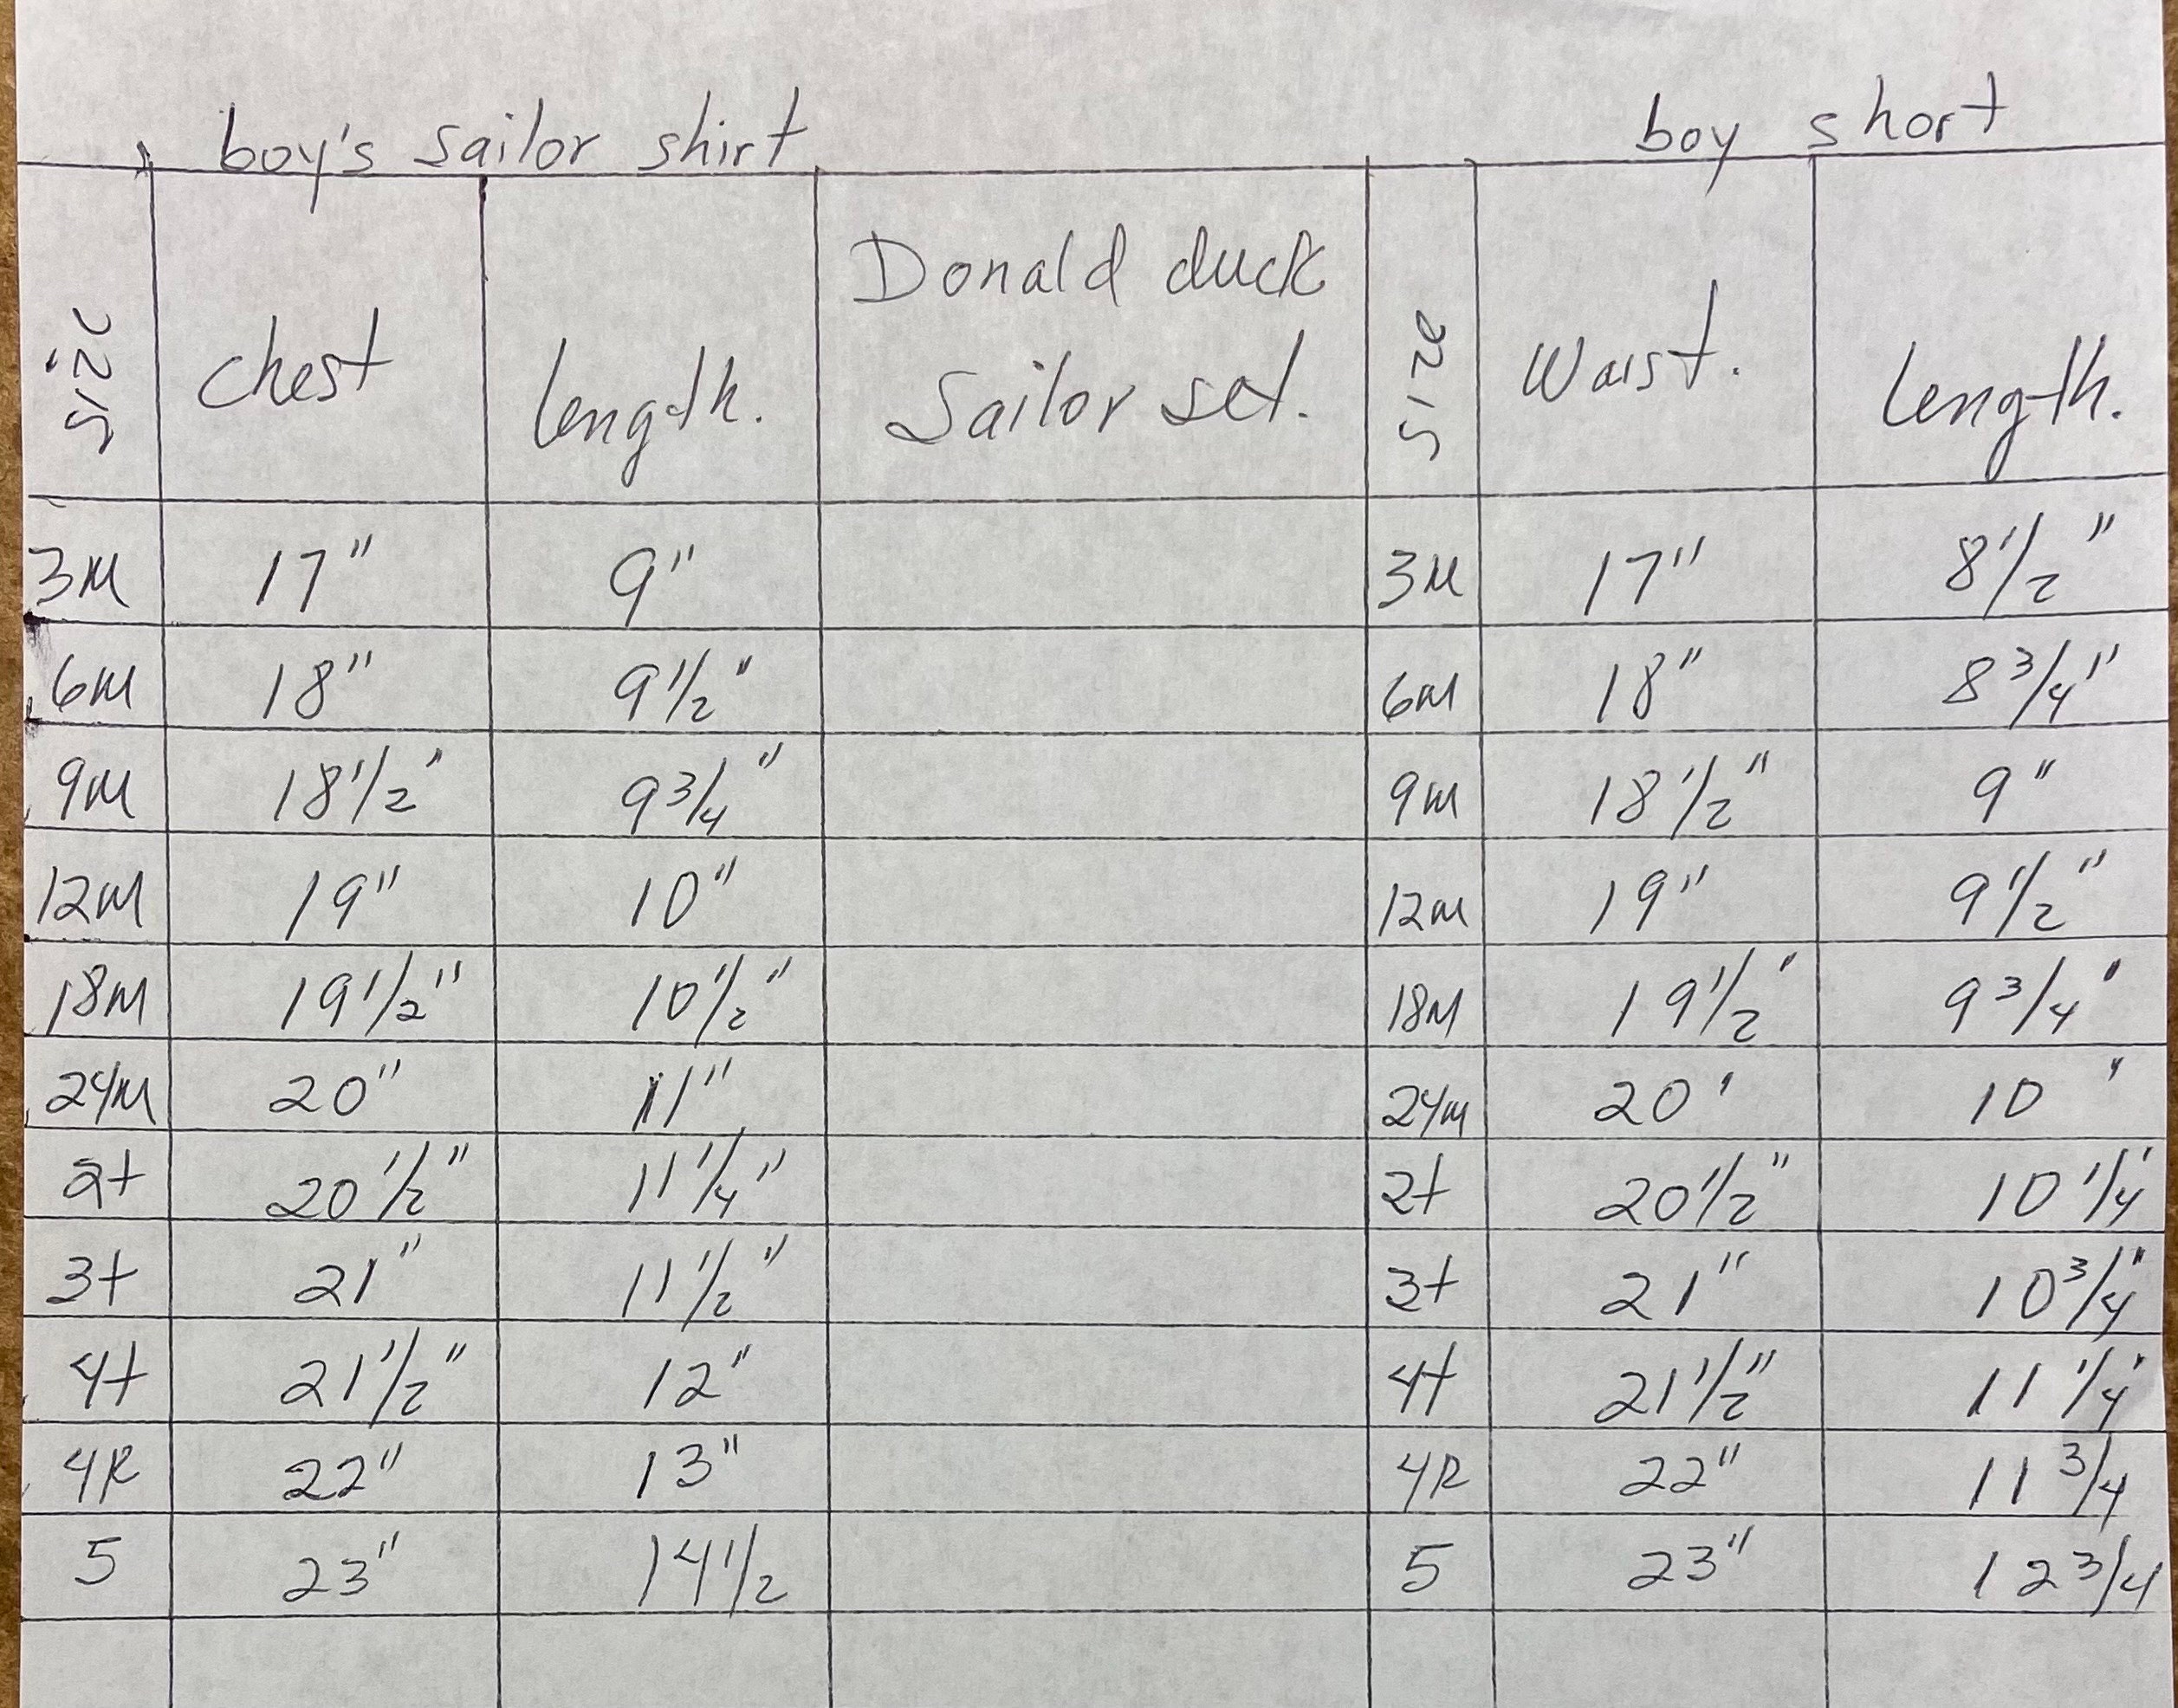 boy's sailor shirt boy short
size chest length. Donald duck Sailor set. size Waist. length.
3M 17" 9" 3M 17" 8 1/2"
6M 18" 9 1/2" 6M 18" 8 3/4"
9M 18 1/2' 9 3/4" 9M 18 1/2" 9"
12M 19" 10" 12M 19" 9 1/2"
18M 19 1/2" 10 1/2" 18M 19 1/2' 9 3/4'
24M 20" 11" 24M 20' 10'
2t 20 1/2" 11 1/4" 2t 20 1/2" 10 1/4'
3t 21" 11 1/2" 3t 21" 10 3/4"
4t 21 1/2" 12" 4t 21 1/2" 11 1/4'
4R 22" 13" 4R 22" 11 3/4
5 23" 14 1/2 5 23" 12 3/4